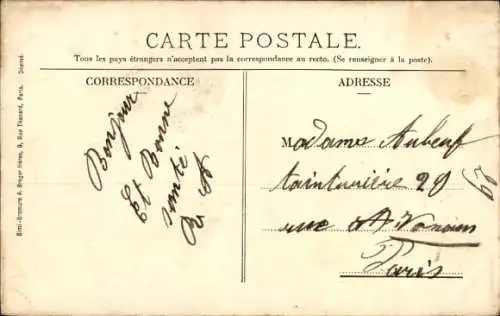 CARTE POSTALE.
Tous les pays étrangers n'acceptent pas la correspondance au recto. (Se renseigner à la poste).
CORRESPONDANCE
ADRESSE
Bonjour
Et Bonne
santé
R A
Madame Aubeuf
tainturière 29
rue
Paris
29